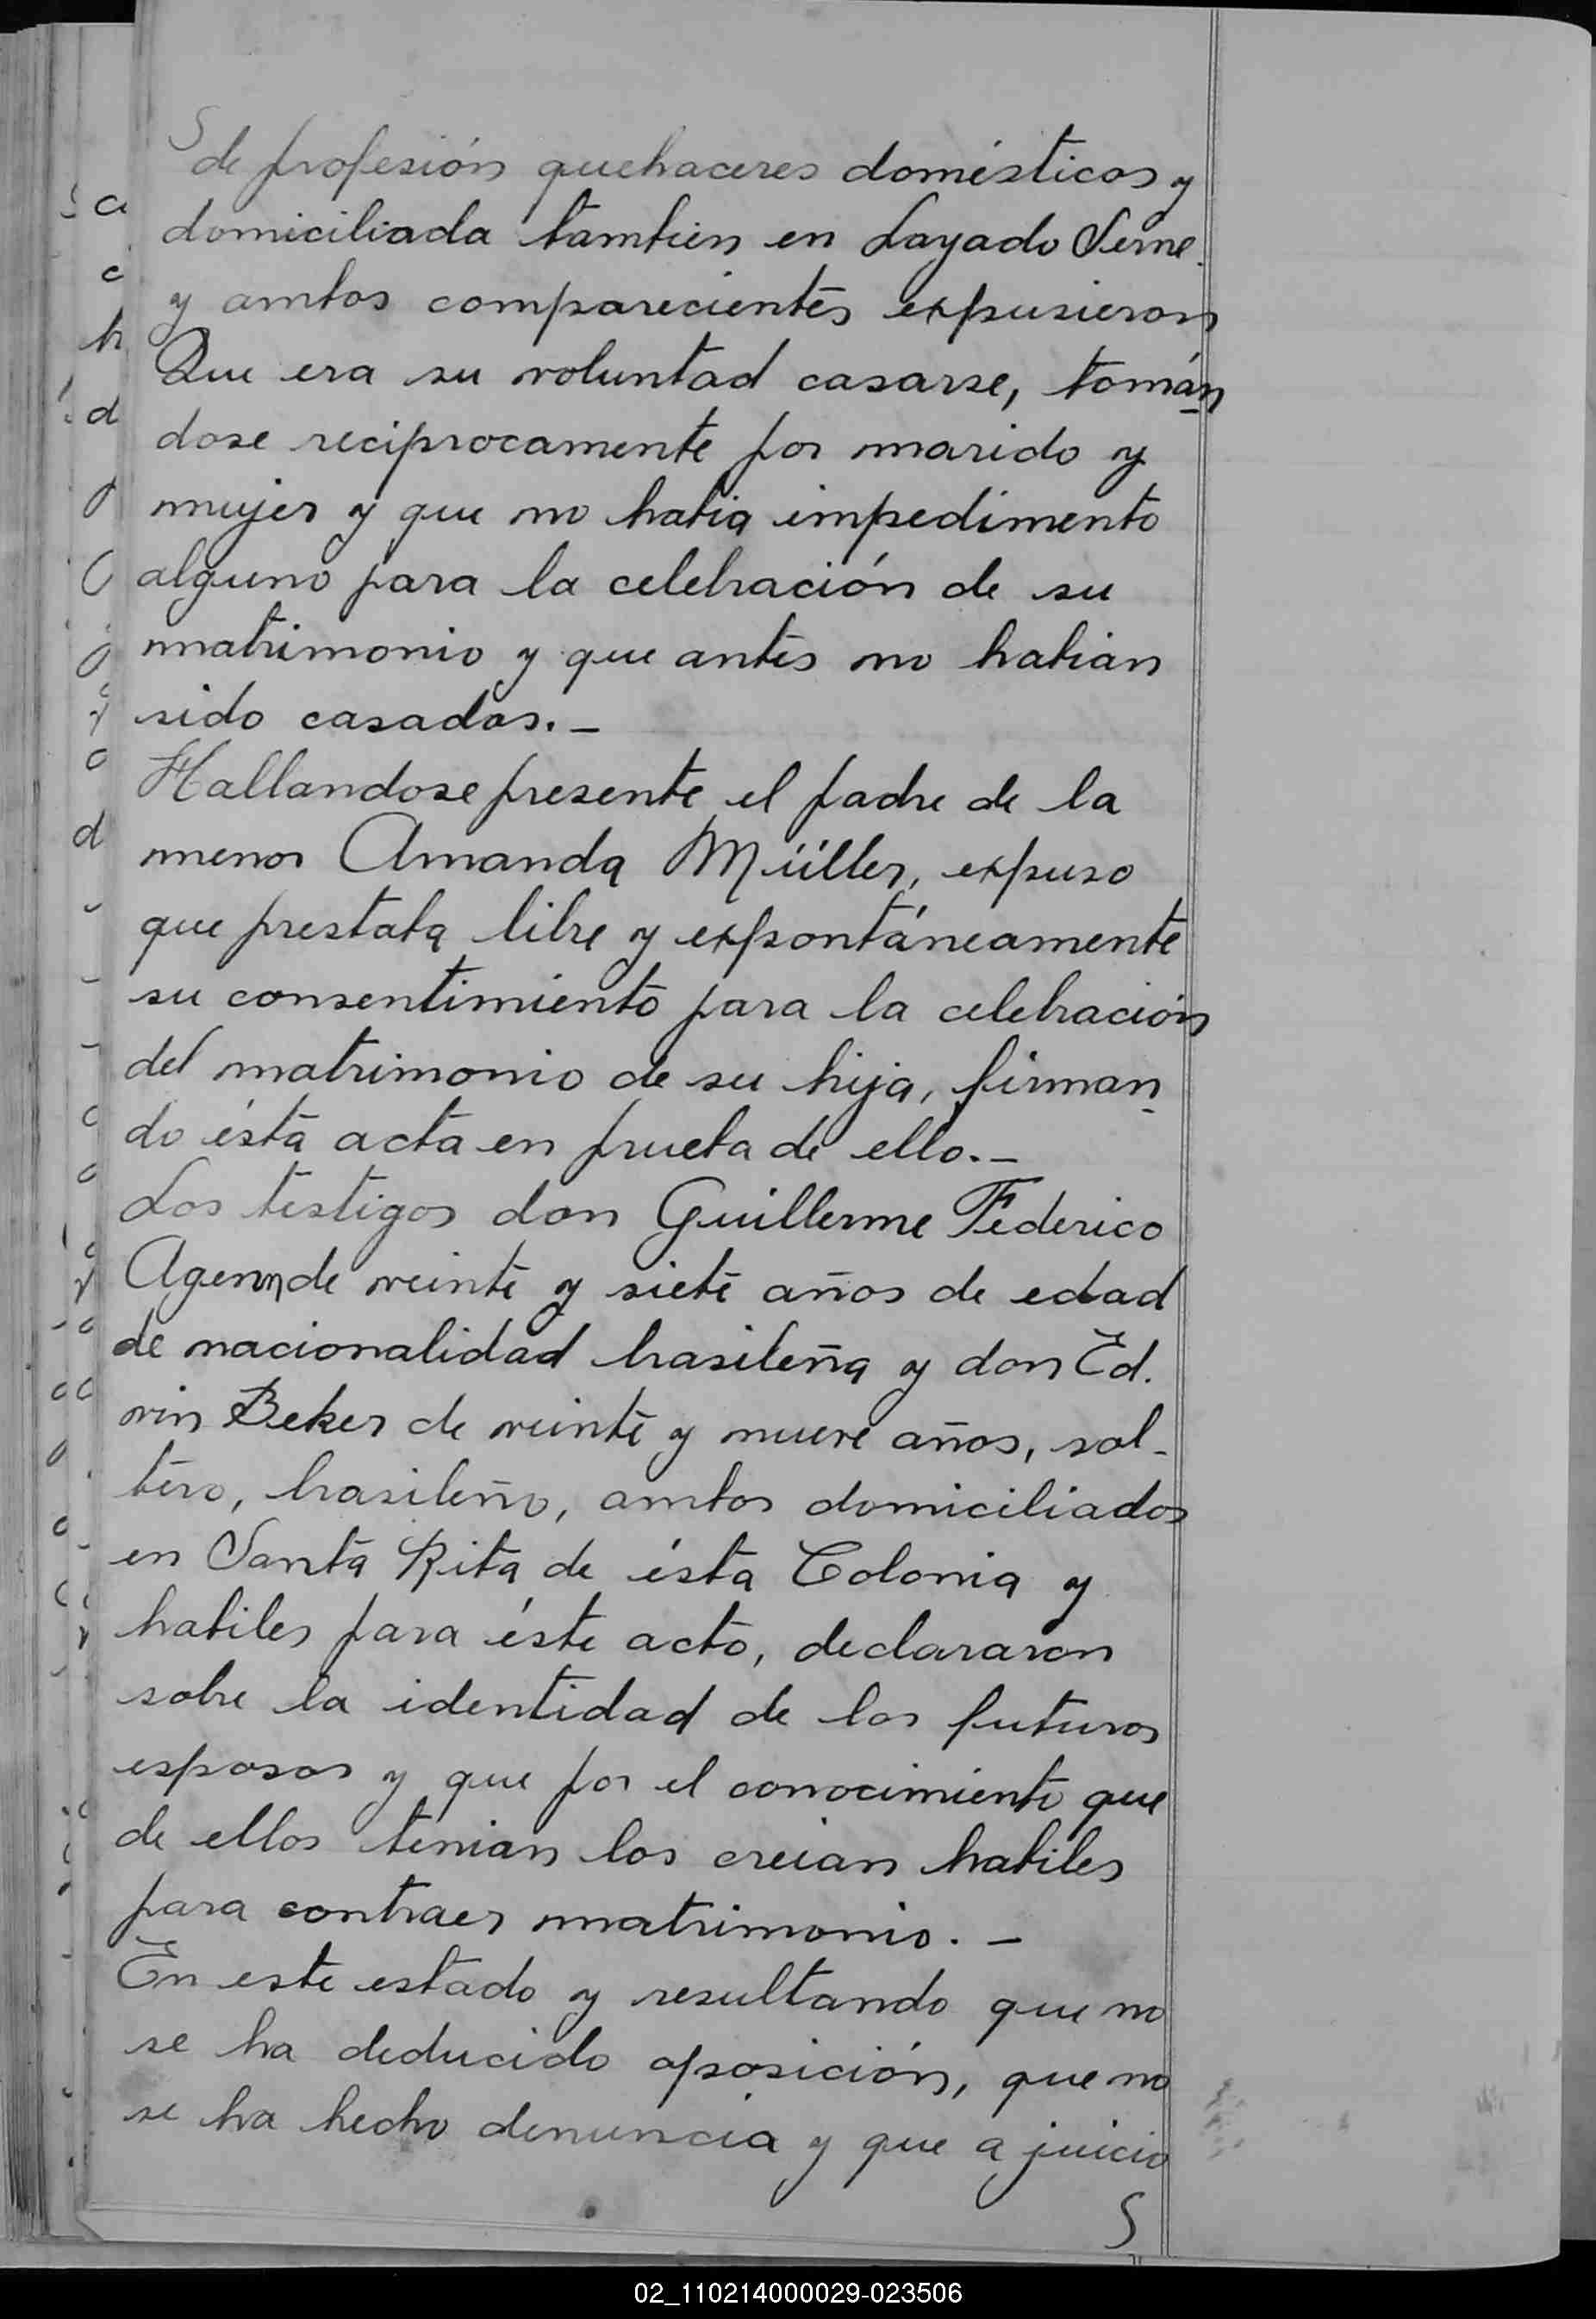 de profesión quehaceres domésticos y
domiciliada tambien en Layado Seme
y ambos comparecientes expusieron
Que era su voluntad casarse, tomán
dose reciprocamente por marido y
mujer y que no habia impedimento
alguno para la celebración de su
matrimonio y que antes no habian
sido casados. –
Hallandose presente el padre de la
menor Amanda Müller, expuso
que prestaba libre y expontáneamente
su consentimiento para la celebración
del matrimonio de su hija, firman
do ésta acta en prueba de ello. –
Los testigos don Guillerme Federico
Agenn, de veinte y siete años de edad
de nacionalidad brasileña y don Ed.
vin Beker de veinte y nueve años, sol-
tero, brasileño, ambos domiciliados
en Santa Rita de ésta Colonia y
habiles para éste acto, declararon
sobre la identidad de los futuros
esposos y que por el conocimiento que
de ellos tenian los creian habiles
para contraer matrimonio. –
En este estado y resultando que no
se ha deducido oposición, que no
se ha hecho denuncia y que a juicio
02_110214000029-023506